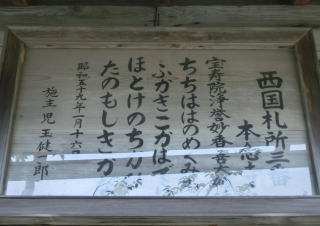 西国札所三番
本
宝寿院浄誉妙香善大
ちちははのめぐみ
ふかきこかはで
ほとけのちかひ
たのもしきか
昭和五十九年一月十六日
施主 児玉健一郎